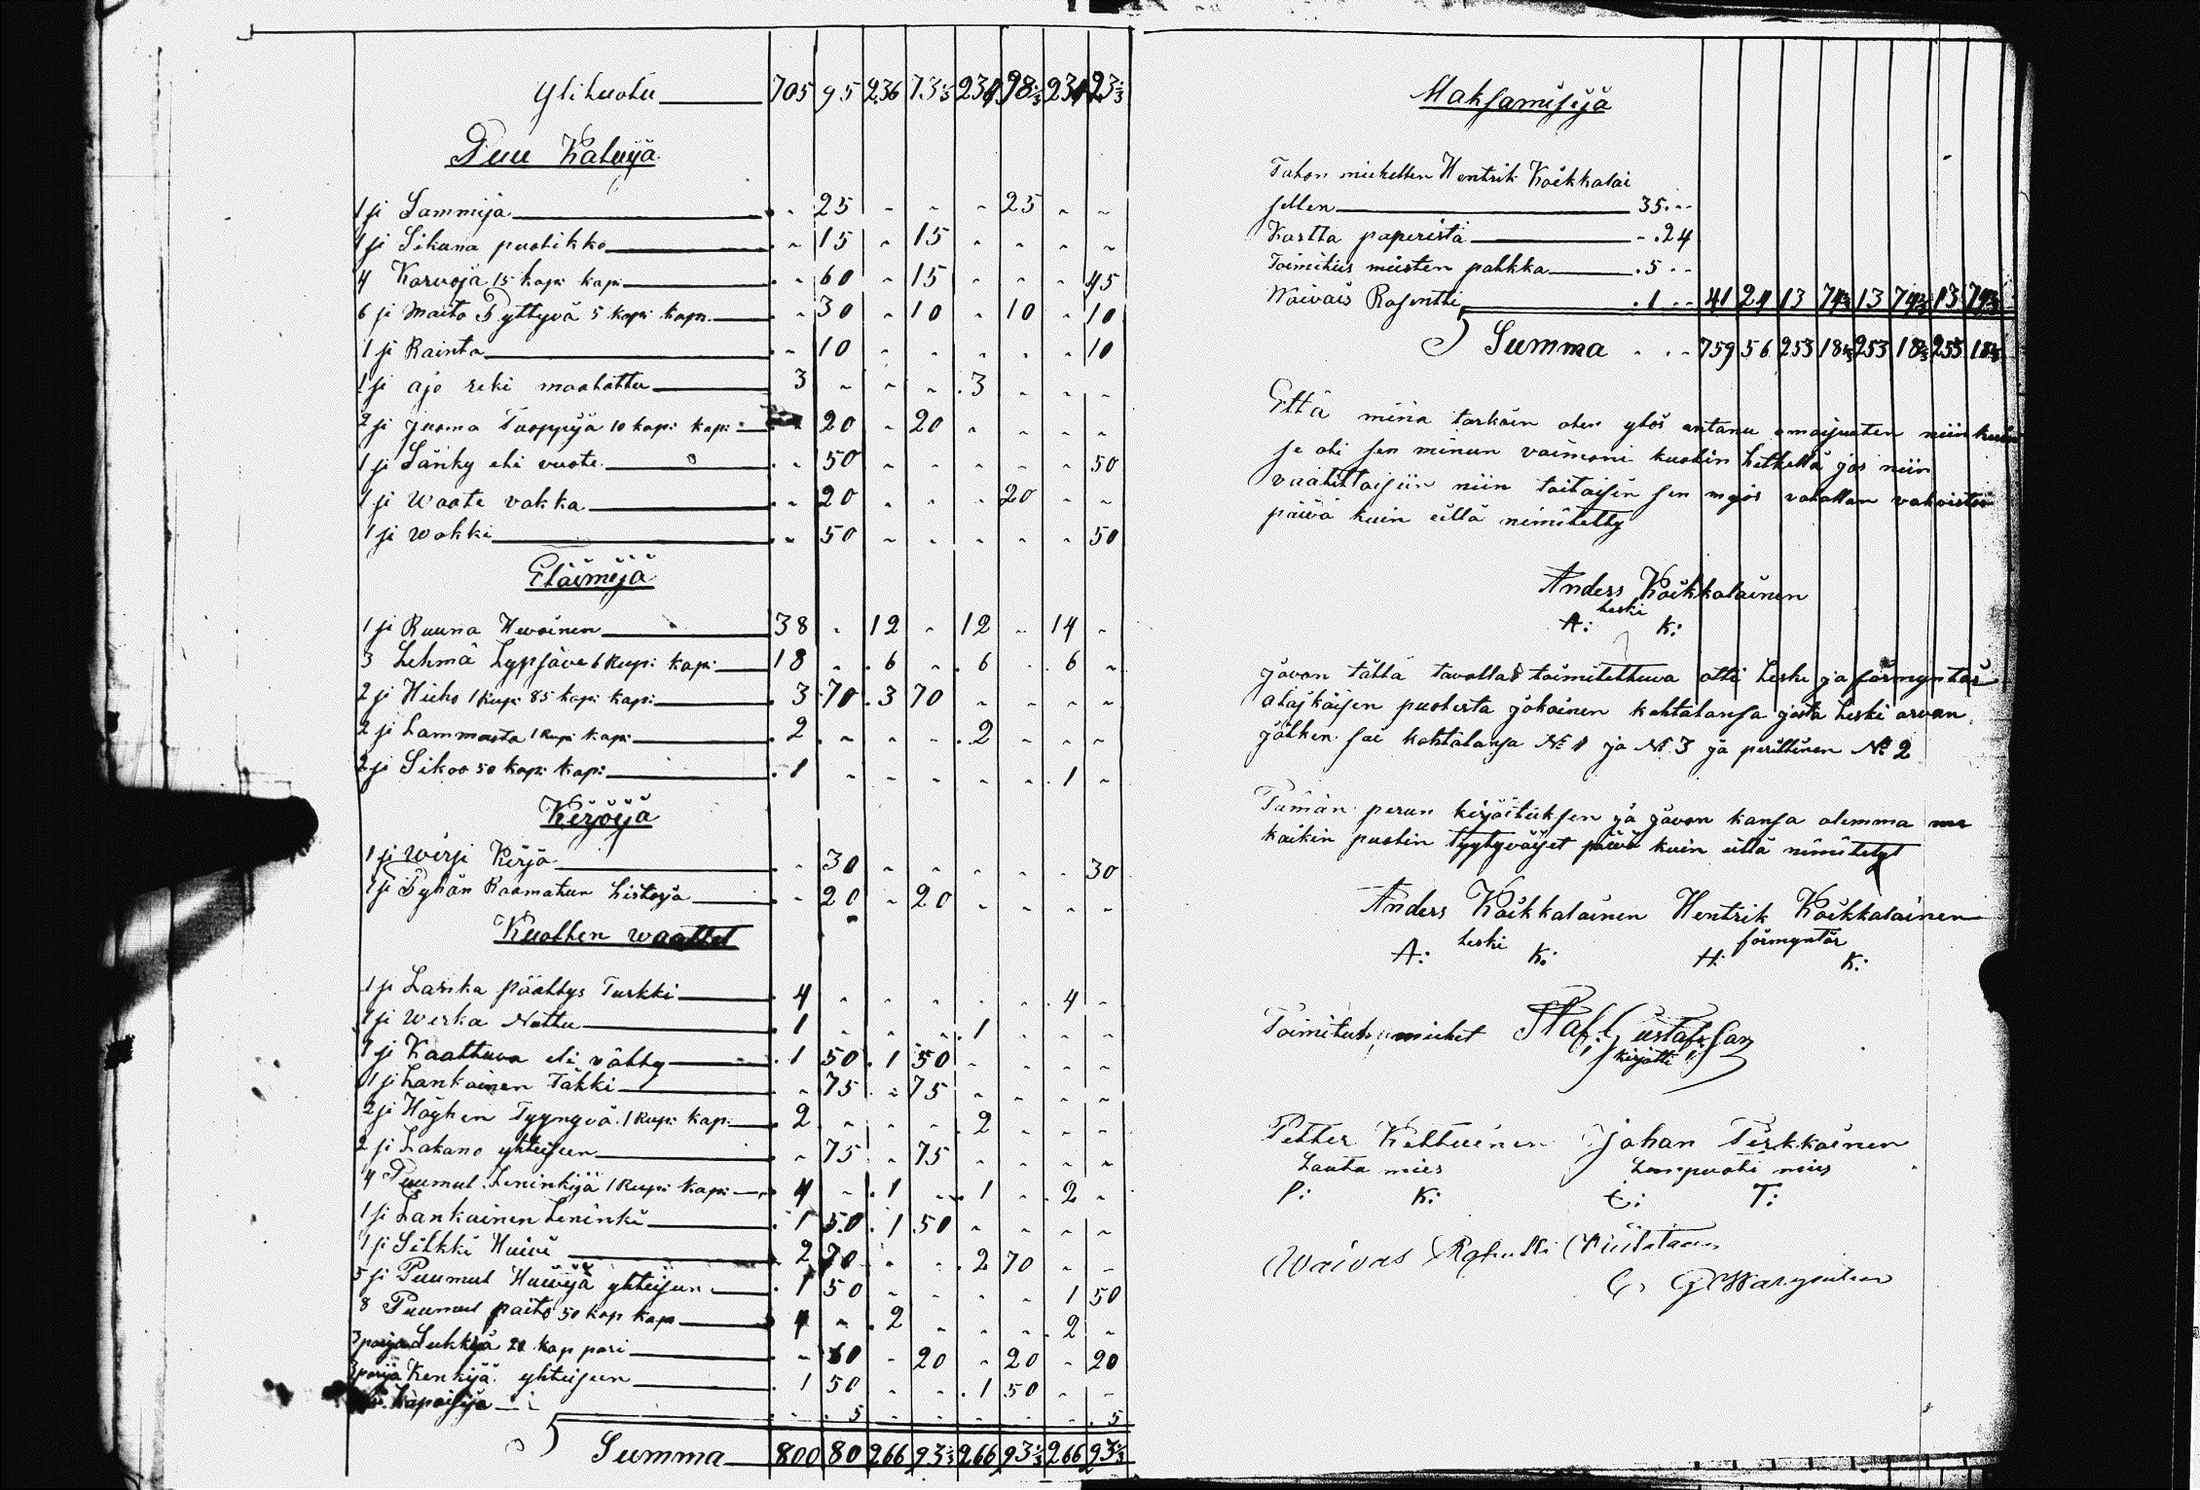 Ylituotu 705 95 236 73⅓ 234 98⅓ 234 23⅓
Puu Kaluja
1 si Sammija - 25 - - - 25 - -
1 si Sikuna puolikko - 15 - 15 - - - -
4 Korvoja 15 kop: kap: - 60 - 15 - - - 45
6 si Maito Pyttyvä 5 kop: kap: - 30 - 10 - 10 - 10
1 si Rainta - 10 - - - - - 10
1 si ajo reki maalattu 3 - - - 3 - - -
2 si Juoma Tuoppija 10 kop: kap: - 20 - 20 - - - -
1 si Sänky eli vuote - 50 - - - - - 50
1 si Waate vakka - 20 - - - 20 - -
1 si wakki - 50 - - - - - 50
Eläimijä
1 si Ruuna Hevoinen 38 - 12 - 12 - 14 -
3 Lehmä Lypsäve 6 Rup: kap: 18 - 6 - 6 - 6 -
2 si Hieho 1 Rup: 85 kop: kap: 3 70 3 70 - - - -
2 si Lammasta 1 Rup: kap: 2 - - - 2 - - -
2 si Sikoo 50 kop: kap: 1 - - - - - 1 -
Kirjoja
1 si Wirsi Kirja - 30 - - - - - 30
1 si Pyhän Raamatun historja - 20 - 20 - - - -
Kuollen waattet
1 si Lanka päällys Turkki 4 - - - - - 4 -
1 si Werka Nuttu 1 - - - 1 - - -
1 si Kaattuva eli vältty 1 50 1 50 - - - -
1 si Lankainen Täkki - 75 - 75 - - - -
2 si Höyhen Tyynyvä 1 Rup: kap: 2 - - - 2 - - -
2 si Lakano yhteisun - 75 - 75 - - - -
4 Puumul Leninkijä 1 Rup: kap: 4 - 1 - 1 - 2 -
1 si Lankainen Leninki 1 50 1 50 - - - -
1 si Silkki Huivi 2 70 - - 2 70 - -
5 si Puumul Huivija yhteisun 1 50 - - - - 1 50
8 Puumul paito 50 kop kap 4 - 2 - - - 2 -
3 parija Sukkija 20 kop pari - 60 - 20 - 20 - 20
3 parija Kenkijä yhteisun 1 50 - - 1 50 - -
kapaisija - 5 - - - - - 5
Summa 800 80 266 93⅓ 266 93⅓ 266 93⅓
Maksamisija
Talon miehellen Hentrik Koikkalai
sellen 35 -
Kartta paperista - 24
Toimitus miisten palkka 5 -
Waivais Rosentti 1 - 41 24 13 74⅔ 13 74⅔ 13 74⅔
Summa 759 56 253 18⅔ 253 18⅔ 253 18⅔
Että minä tarkoin olen ylös antanu omaijsuten niin kuin
se oli sen minun vaimoni kuolin hetkellä jos niin
vaadittaisiin niin taitaisin sen myös valallan vahvistaa
päivä kuin eillä nimitetty
Anders Koikkalainen
leski
A: K:
Javon tällä tavalla toimitettuva otti Leski ja förmyntär
alajkäisen puolesta jokainen kohtalansa josta Leski arvan
jälken sai kohtalansa No 1 ja No 3 ja perillinen No 2
Tämän perun kirjoituksen ja javon kansa olemma me
kaikin puolin tyytyväiset päivä kuin eillä nimitetyt
Anders Koikkalainen Hentrik Koikkalainen
leski förmyntär
A: K: H: K:
Toimitus miehet Staf: Gustafsson
kirjotti
Petter Kettuinen Johan Tirkkoinen
Lauta mies Lampuoti mies
P: K: T:
Waivas